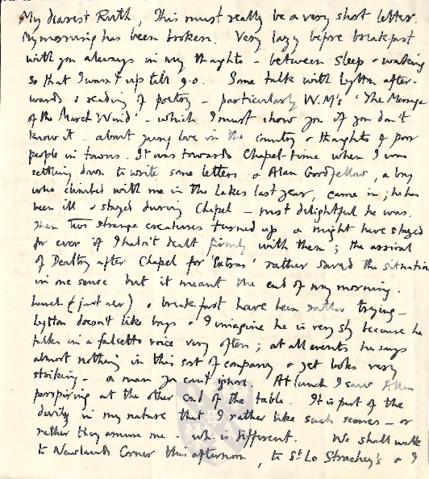 My dearest Ruth, This must really be a very short letter.
My morning has been broken. Very lazy before breakfast
with you always in my thoughts - between sleep & waking
so that I wasn't up till 9.0. Some talk with Lytton after-
wards & reading of poetry - particularly W.M's 'The Message
of the March Wind' - which I must show you if you don't
know it - about young love in the country & thoughts of poor
people in towns. It was towards Chapel time when I was
settling down to write some letters & Alan Goodfellow, a boy
who climbed with me in the Lakes last year, came in; he has
been ill & stayed during Chapel - most delightful he was.
Then two strange creatures turned up & might have stayed
for ever if I hadn't dealt firmly with them; the arrival
of Dealtry after Chapel for 'Extras' rather saved the situation
in one sense but it meant the end of my morning.
Lunch (just over) & breakfast have been rather trying -
Lytton doesn't like boys & I imagine he is very shy because he
talks in a falsetto voice very often; at all events he says
almost nothing in this sort of company & yet looks very
striking - a man you can't ignore. At lunch I saw Allen
perspiring at the other end of the table. It is part of the
in my nature that I rather like such scenes - or
rather they amuse me - wh. is different. We shall walk
to Newlands Corner this afternoon, to St Lo Strachey's & I